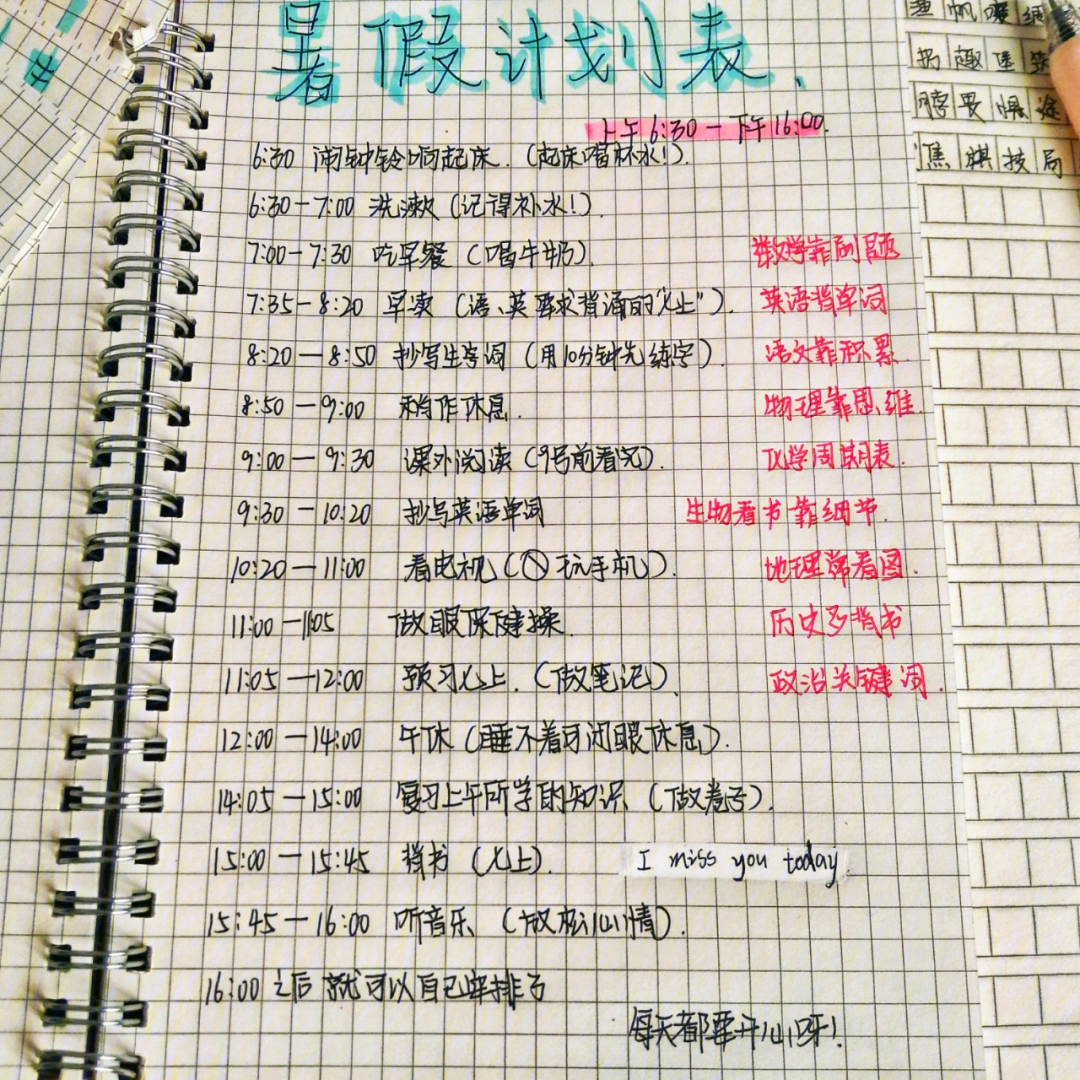 暑假计划表.
上午6:30—下午16:00.
6:30 闹钟铃响起床.(起床喝杯水!).
6:30—7:00 洗漱(记得补水!).
7:00—7:30 吃早餐(喝牛奶).
数学靠刷题
7:35—8:20 早读(语、英要求背诵的"八上").
英语背单词
8:20—8:50 抄写生字词(用10分钟先练字).
语文靠积累.
8:50—9:00 稍作休息.
物理靠思维.
9:00—9:30 课外阅读(9号前看完).
化学周期表.
9:30—10:20 抄写英语单词
生物看书靠细节.
10:20—11:00 看电机(玩手机).
地理常看图.
11:00—11:05 做眼保健操.
历史多背书
11:05—12:00 预习八上.(做笔记).
政治关键词.
12:00—14:00 午休(睡不着可闭眼休息).
14:05—15:00 复习上午所学的知识(做卷子).
15:00—15:45 背书(八上).
I miss you today
15:45—16:00 听音乐(放松心情).
16:00之后就可以自己安排了
每天都要开心呀!
理 帆
趣
畏 惧 途
焦 棋 技 局